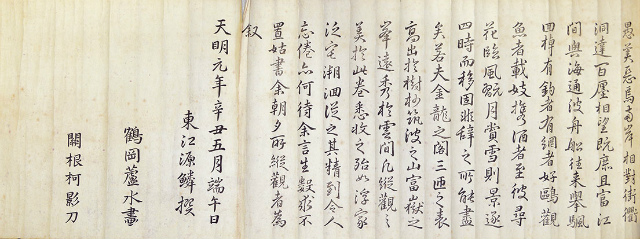 愚美惡馬両岸相對街衢
洞達百廛相望既庶且富江
間與海通波舟船往来舉颿
回棹有釣者有網者好鷗觀
魚者載妓携酒者至彼尋
花臨風翫月賞雪則景逐
四時而移固非辞之所能盡
矣若夫金龍之閣三匝之表
高出於樹杪筑波之山富嶽之
峯遠秀於雲間凡縦觀之
美於此卷悉收之殆如浮家
泛宅溯洄従之其精到令人
忘倦亦何待余言生數求不
置姑書余朝夕所縦觀者為
叙
天明元年辛丑五月端午日
東江源鱗撰
鶴岡蘆水畫
關根柯影刀